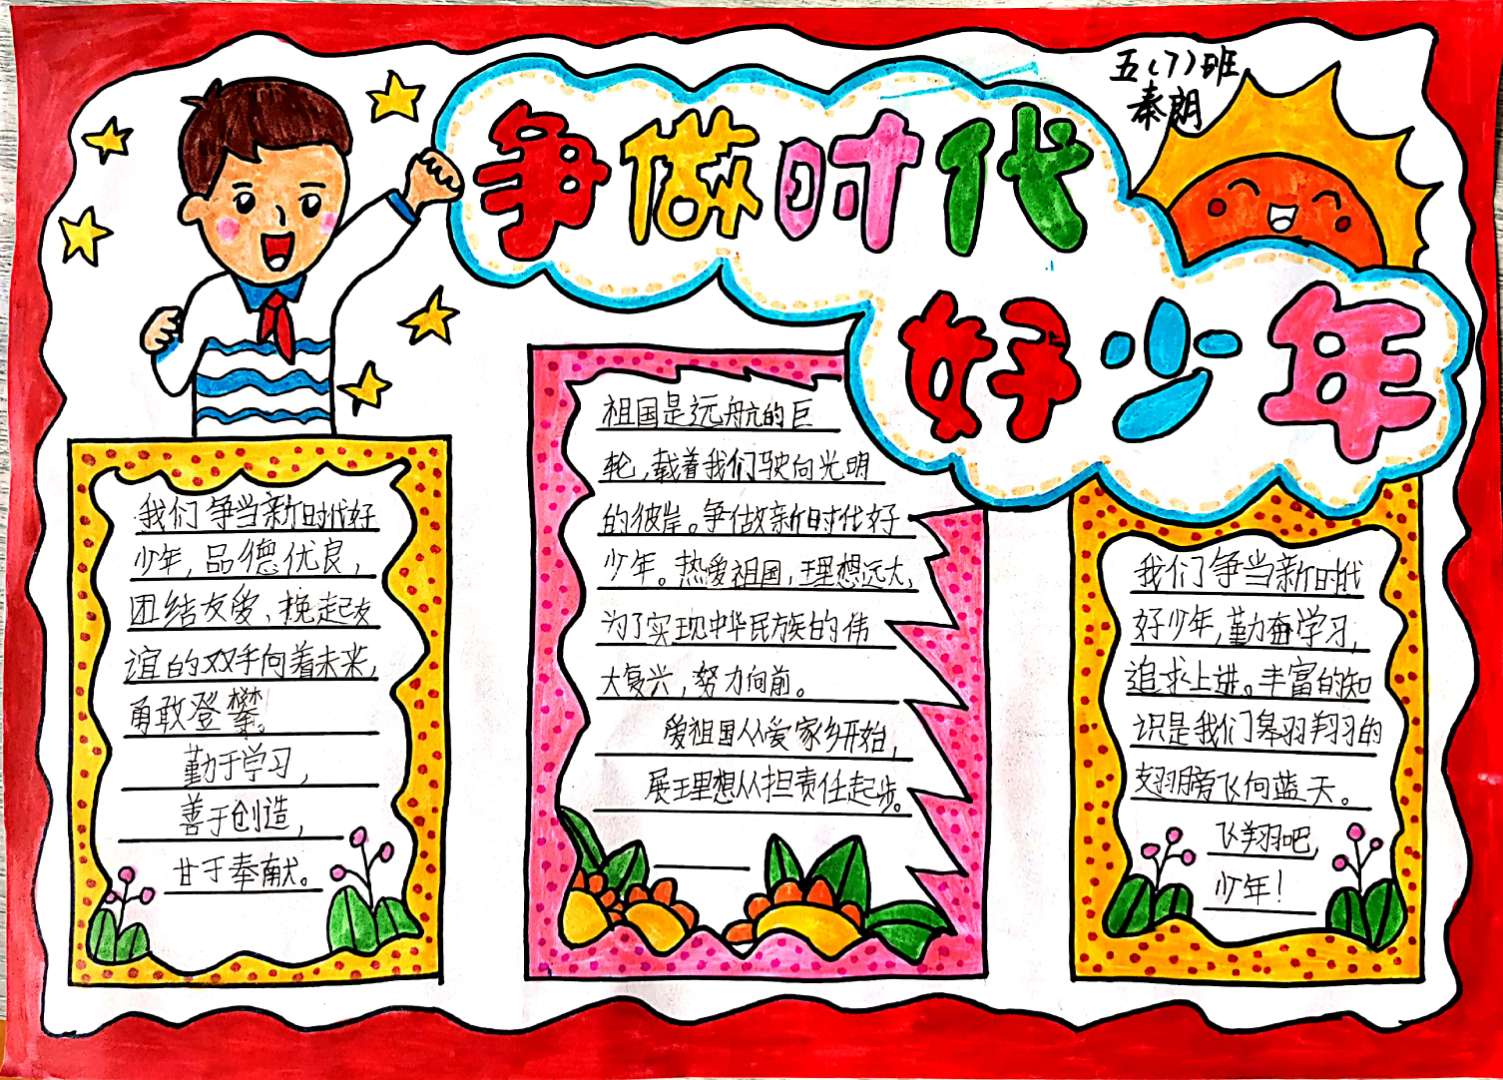 五(7)班
秦朗
争做时代
好少年
我们争当新时代好
少年,品德优良,
团结友爱、挽起友
谊的双手向着未来,
勇敢登攀。
勤于学习,
善于创造,
甘于奉献。
祖国是远航的巨
轮,载着我们驶向光明
的彼岸。争做新时代好
少年。热爱祖国,理想远大,
为了实现中华民族的伟
大复兴,努力向前。
爱祖国从爱家乡开始,
展理想从担责任起步。
我们争当新时代
好少年,勤奋学习,
追求上进。丰富的知
识是我们翱翔的
翅膀飞向蓝天。
飞翔吧,
少年!